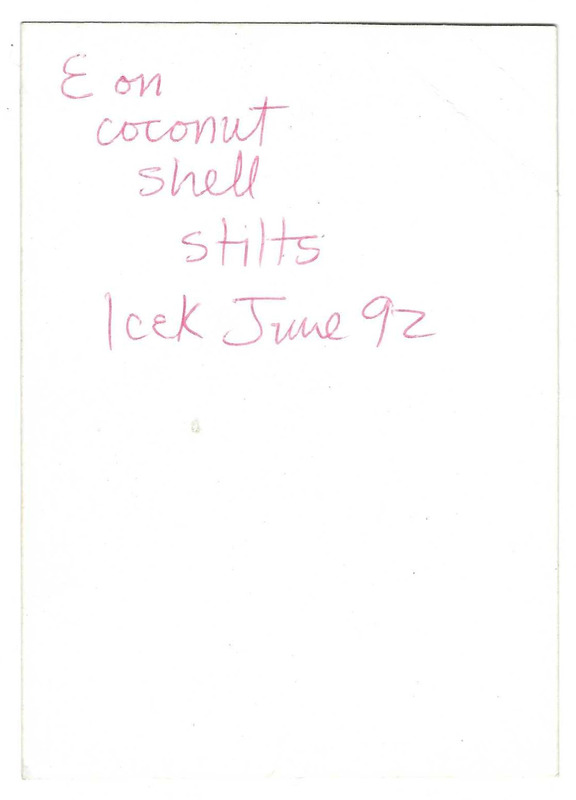 E on
coconut
shell
stilts
Icek June 92